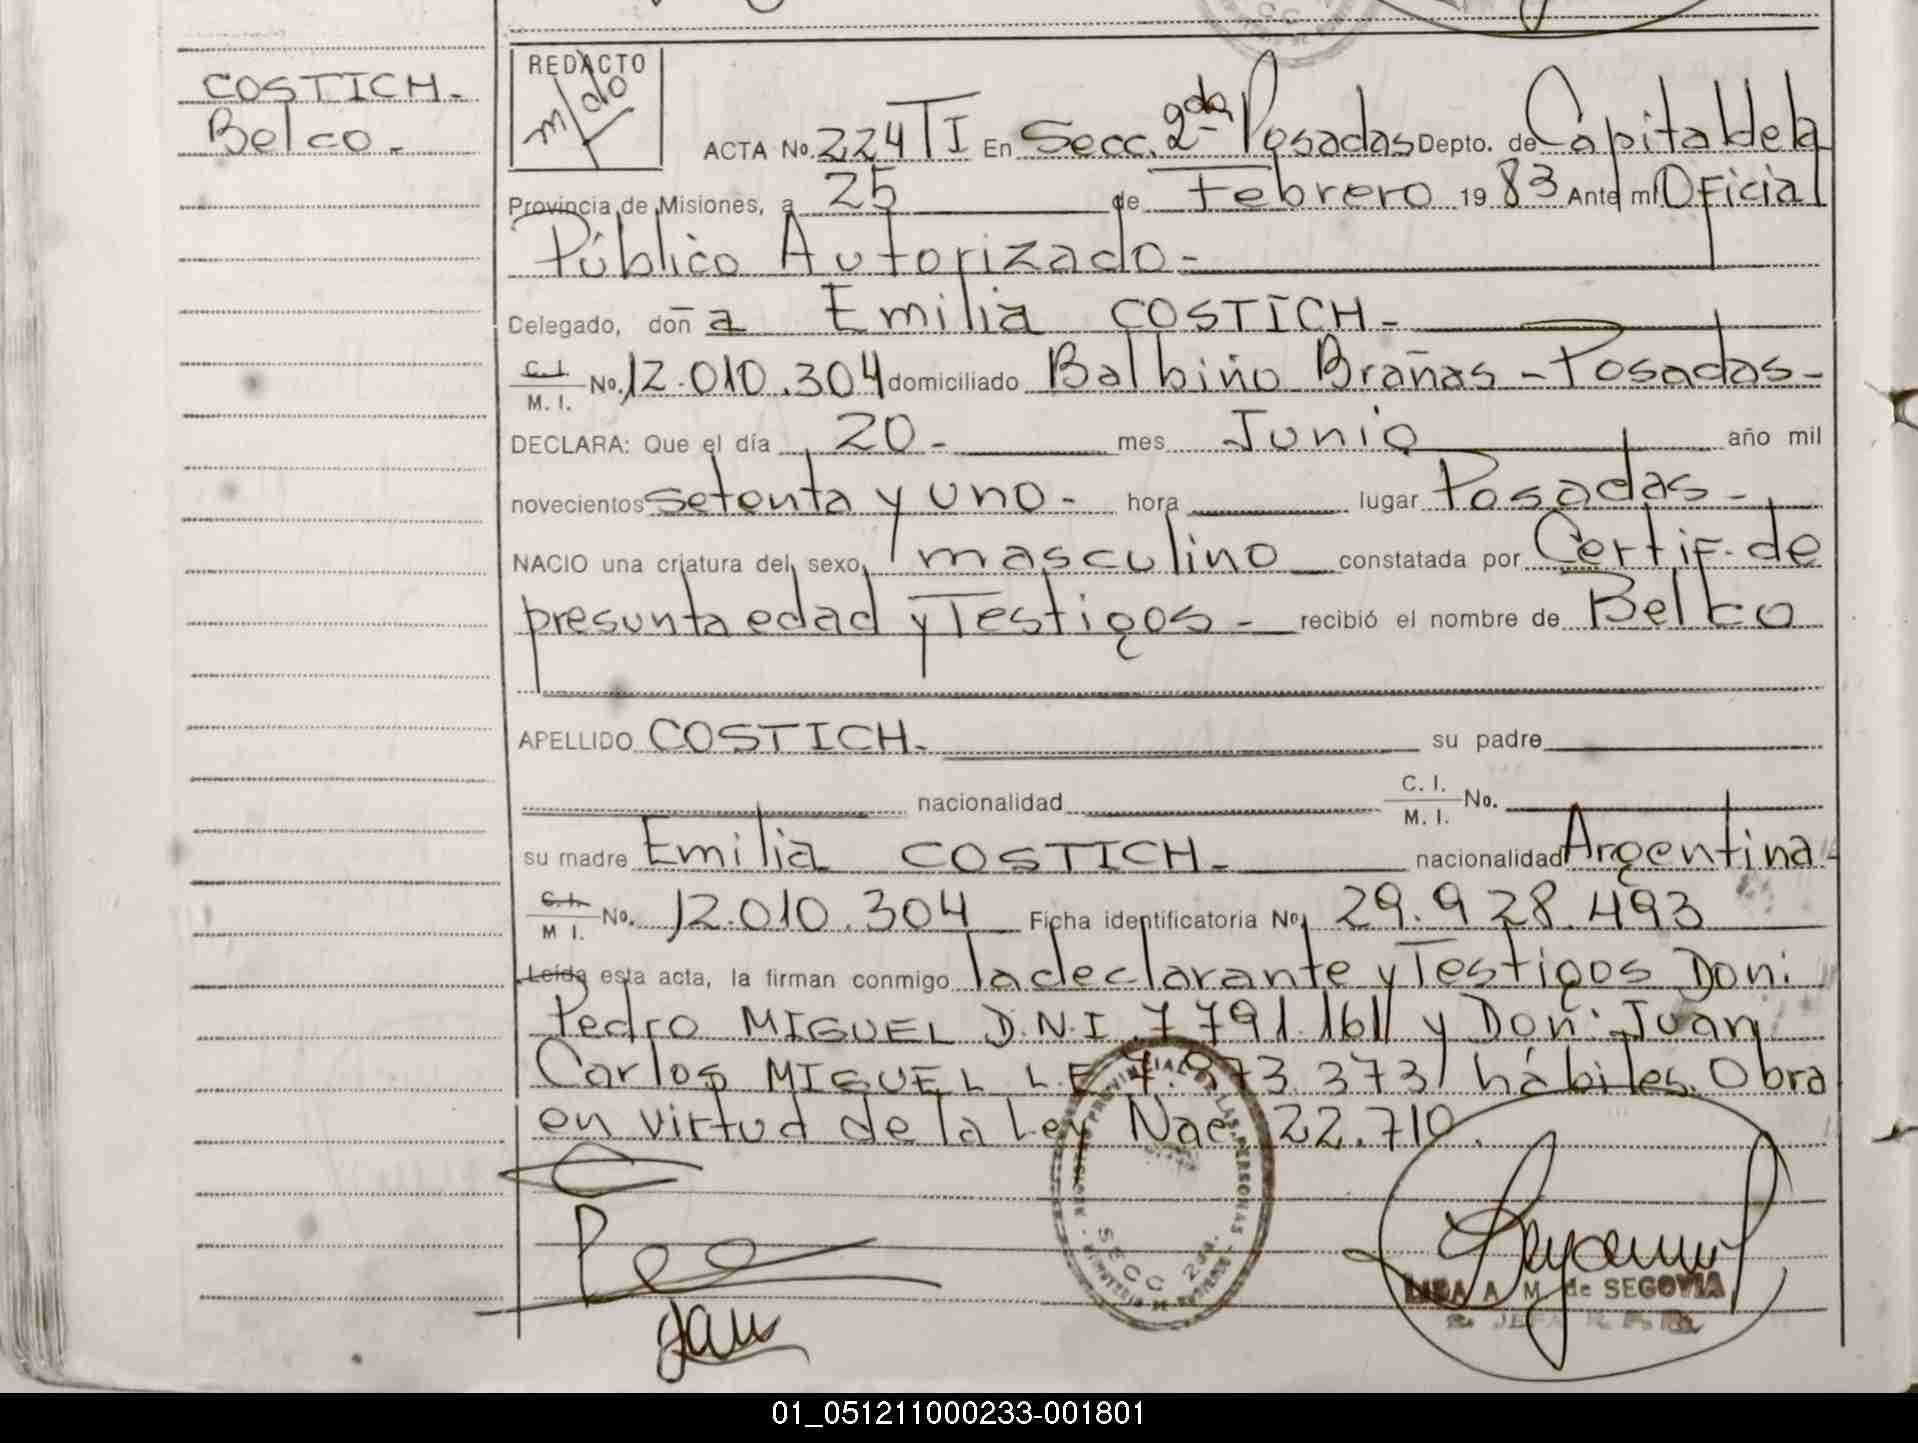 COSTICH.
Belco.
REDACTO
ACTA No. 224 TI En Secc. 2da Posadas Depto. de Capital de la
Provincia de Misiones, a 25 de Febrero 1983 Ante mi Oficial
Público Autorizado.-
Delegado, doña Emilia COSTICH.-
C.I. M. I. No. 12.010.304 domiciliado Balbino Brañas - Posadas-
DECLARA: Que el día 20.- mes Junio año mil
novecientos setenta y uno.- hora lugar Posadas.-
NACIO una criatura del sexo masculino constatada por Certif. de
presunta edad y Testigos.- recibió el nombre de Belco
APELLIDO COSTICH. su padre
nacionalidad C. I. M. I. No.
su madre Emilia COSTICH.- nacionalidad Argentina.
C.I. M I. No. 12.010.304 Ficha identificatoria No. 29.928.493
Leída esta acta, la firman conmigo la declarante y Testigos Don:
Pedro MIGUEL D.N.I. 7791.161 y Don: Juan
Carlos MIGUEL L.E 7.873.373 hábiles. Obra
en virtud de la Ley Nac 22.710.
REGISTRO PROVINCIAL DE LAS PERSONAS
SECC 2da.
MINISTERIO DE GOBIERNO
LIDA A. M. de SEGOVIA
01_051211000233-001801